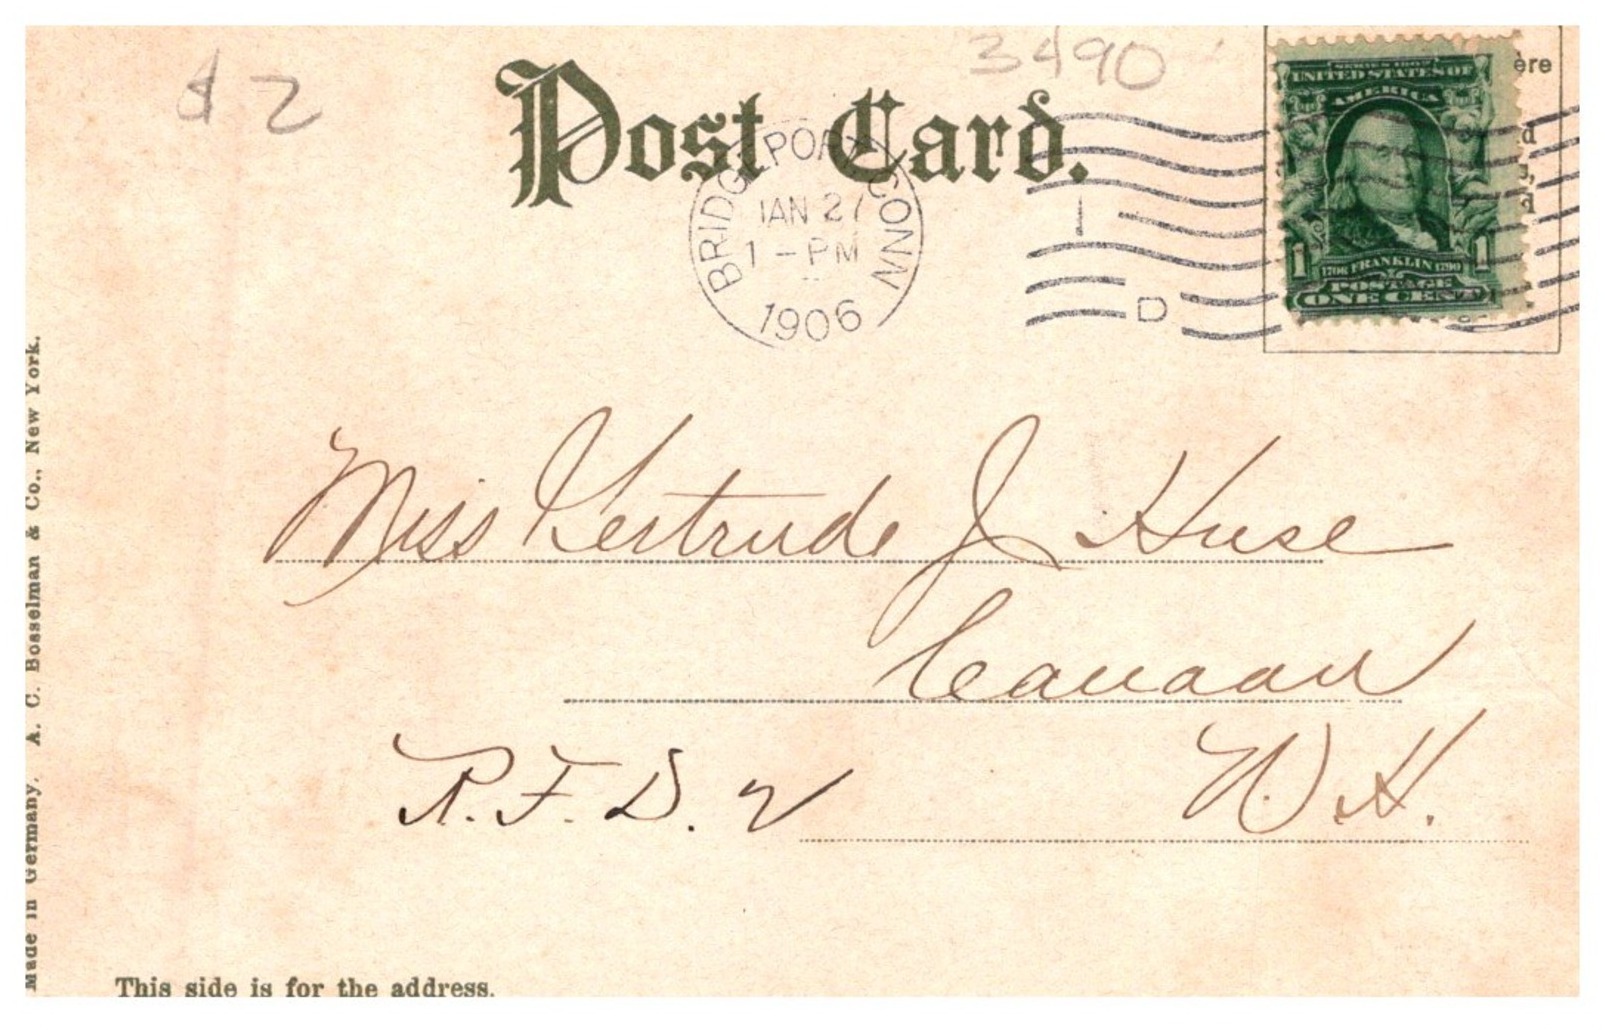 $2
3490
Post Card.
BRIDGEPORT CONN
JAN 27
1-PM
1906
D
ere
d
d
SERIES 1902
UNITED STATES OF
AMERICA
1 1
1706 FRANKLIN 1790
POSTAGE
ONE CENT
Miss Gertrude J Huse
Canaan
R. F. D. 2 N. H.
This side is for the address.
Made in Germany. A. C. Bosselman & Co., New York.